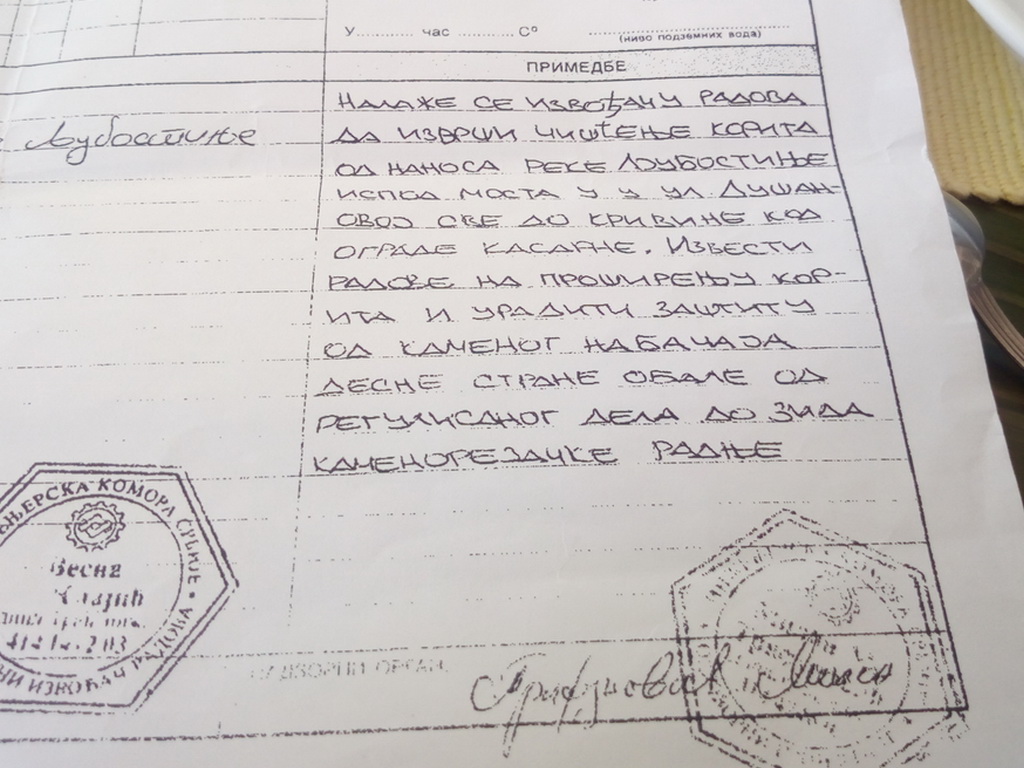 У........... час ........... C°
(ниво подземних вода)
ПРИМЕДБЕ
Љубостиње
НАЛАЖЕ СЕ ИЗВОЂАЧУ РАДОВА
ДА ИЗВРШИ ЧИШЋЕЊЕ КОРИТА
ОД НАНОСА РЕКЕ ЉУБОСТИЊЕ
ИСПОД МОСТА У У УЛ ДУШАН-
ОВОЈ СВЕ ДО КРИВИНЕ КОД
ОГРАДЕ КАСАРНЕ. ИЗВЕСТИ
РАДОВЕ НА ПРОШИРЕЊУ КОР-
ИТА И УРАДИТИ ЗАШТИТУ
ОД КАМЕНОГ НАБАЧАЈА
ДЕСНЕ СТРАНЕ ОБАЛЕ ОД
РЕГУЛИСАНОГ ДЕЛА ДО ЗИДА
КАМЕНОРЕЗАЧКЕ РАДЊЕ
ЊЕРСКА КОМОРА СРБИЈЕ
Весна
НИ ИЗВОЂАЧ РАДОВА
ОРГАН